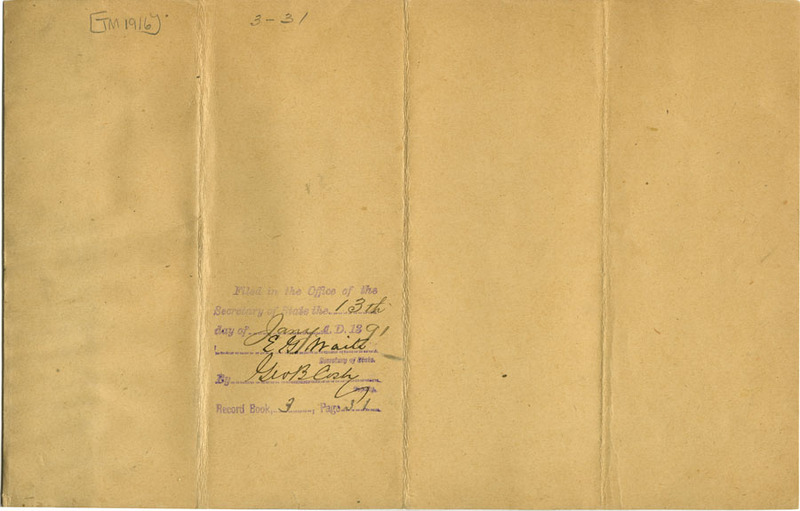 [TM 1916]
3-31
Filed in the Office of the
Secretary of State the 13th
day of Jany A. D. 1891
E. G. Waite
Secretary of State.
By Geo B Cosby
Deputy
Record Book, 3, Page 31